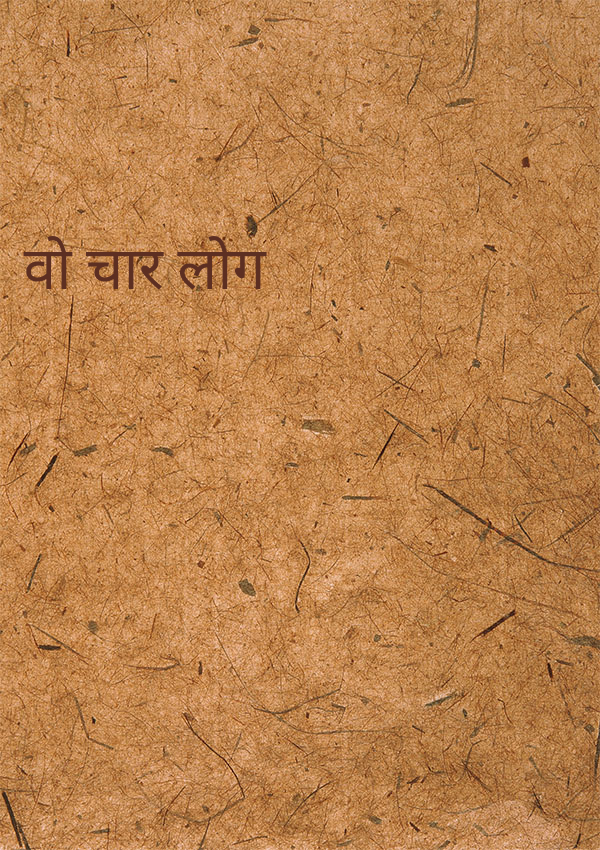 वो चार लोग